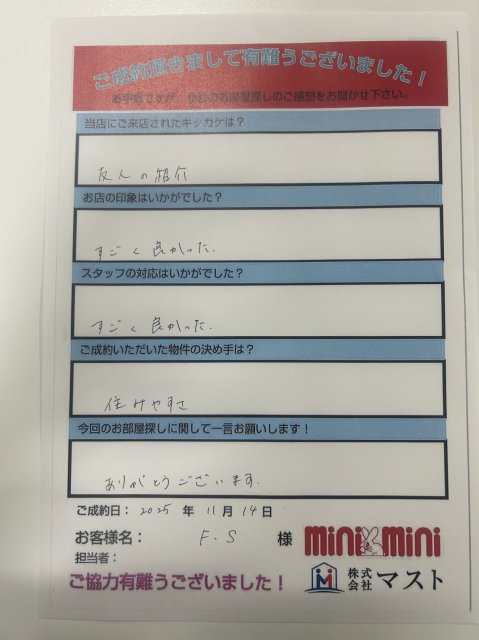 ご成約頂きまして有難うございました！
お手数ですが、今回のお部屋探しのご感想をお聞かせ下さい。
当店にご来店されたキッカケは？
友人の紹介
お店の印象はいかがでした？
すごく良かった.
スタッフの対応はいかがでした？
すごく良かった.
ご成約いただいた物件の決め手は？
住みやすさ
今回のお部屋探しに関して一言お願いします！
ありがとうございます.
ご成約日： 2025 年 11 月 14 日
お客様名： F.S 様 mini mini
担当者：
株式会社 マスト
ご協力有難うございました！